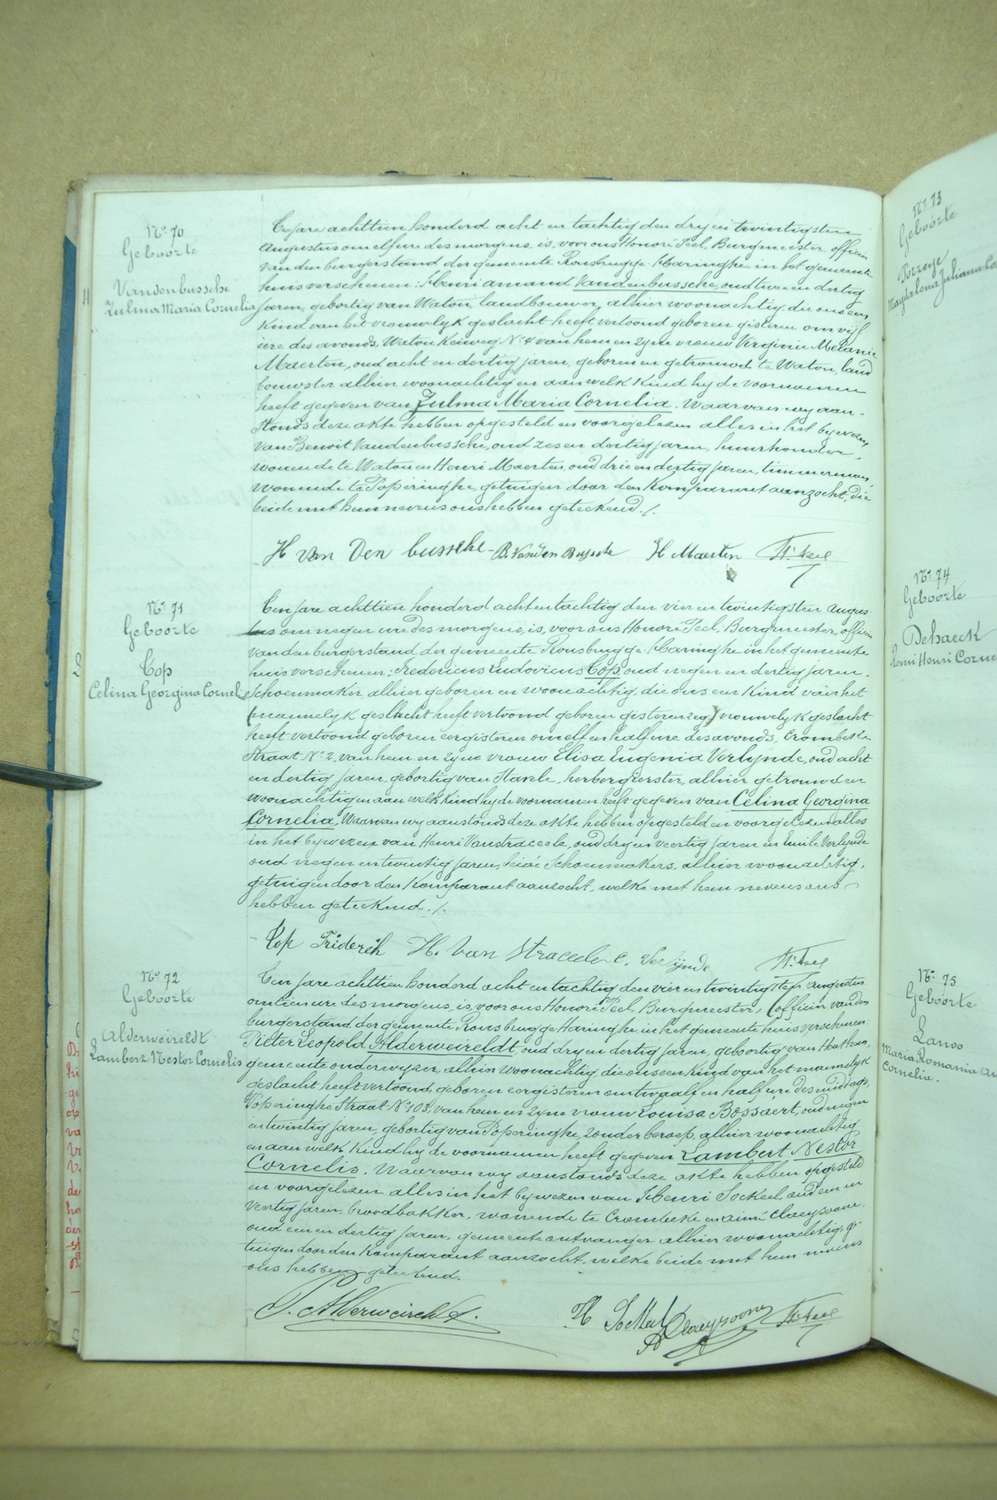 No 70
Geboorte
Vandenbussche
Zulma Maria Cornelia
Ten jare achttien honderd acht en tachtig den dry en twintigsten
Augustus om elf ure des morgens, is, voor ons Honoré Feel, Burgmeester, officier
van den burgerstand der gemeente Rousbrugge-Haringhe in het gemeente
huis verschenen: Henri amand Vandenbussche, oud twee en dertig
jaren, geboortig van Watou, landbouwer, alhier woonachtig, die ons een
kind van het vrouwelyk geslacht heeft vertoond geboren gisteren om vijf
ure des avonds, Watou Keiweg No 4 van hem en zyne vrouw Virginie Melanie
Maerten, oud acht en dertig jaren, geboren en getrouwd te Watou, land
bouwster alhier woonachtig en aan welk kind hy de voornamen
heeft gegeven van Zulma Maria Cornelia. Waarvan wy aan-
stonds deze akte hebben opgesteld en voorgelezen alles in het bywezen
van Benoit Vandenbussche, oud zes en dertig jaren, huurhouder,
wonende te Watou en Henri Maerten, oud drie en dertig jaren, timmerman,
wonende te Poperinghe, getuigen door den komparant aanzocht, die
beide met hem nevens ons hebben geteekend./.
H Van Den bussche B. Vanden Bussche H Maerten H. Feel
No 71
Geboorte
Cop
Celina Georgina Cornelia
Ten jare achttien honderd acht en tachtig den vier en twintigsten augus
tus om negen ure des morgens, is, voor ons Honoré Feel, Burgmeester, officier
van den burgerstand der gemeente Rousbrugge-Haringhe in het gemeente
huis verschenen: Fredericus Ludovicus Cop, oud negen en dertig jaren,
schoenmaker alhier geboren en woonachtig, die ons een kind van het
(mannelyk geslacht heeft vertoond geboren gisteren) vrouwelyk geslacht
heeft vertoond geboren eergisteren om elf en half ure des avonds, Crombeke
Straat No 2, van hem en zyne vrouw Elisa Eugenia Verlynde, oud acht
en dertig jaren, geboortig van Stavele, herbergierster, alhier getrouwd en
woonachtig en aan welk kind hy de voornamen heeft gegeven van Celina Georgina
Cornelia. Waarvan wy aanstonds deze akte hebben opgesteld en voorgelezen alles
in het bywezen van Henri Vanstraceele, oud dry en veertig jaren en Emile Verlynde
oud negen en twintig jaren, beide schoenmakers, alhier woonachtig,
getuigen door den komparant aanzocht, welke met hem nevens ons
hebben geteekend./.
Cop Friderik H. Van Straceele E. Verlynde H. Feel
No 72
Geboorte
Alderweireldt
Lambert Nestor Cornelis
Ten jare achttien honderd acht en tachtig den vier en twintigsten augustus
om tien ure des morgens, is, voor ons Honoré Feel, Burgmeester, officier van den
burgerstand der gemeente Rousbrugge Haringhe in het gemeente huis verschenen:
Pieter Leopold Alderweireldt, oud dry en dertig jaren, geboortig van Houthem,
gemeente onderwyzer, alhier woonachtig die ons een kind van het mannelyk
geslacht heeft vertoond geboren eergisteren om twaalf en half ure des middags,
Poperinghe Straat No 108, van hem en zyne vrouw Louisa Bossaert, oud negen
en twintig jaren, geboortig van Poperinghe, zonder beroep, alhier woonachtig
en aan welk kind hy de voornamen heeft gegeven Lambert Nestor
Cornelis. Waarvan wy aanstonds deze akte hebben opgesteld
en voorgelezen alles in het bywezen van Henri Sockeel, oud een en
veertig jaren, broodbakker, wonende te Crombeke en aimé Claeysoone,
oud een en dertig jaren, gemeente ontvanger alhier woonachtig, ge
tuigen door den komparant aanzocht, welke beide met hem nevens
ons hebben geteekend.
P. Alderweireldt. H Sockeel A Claeysoone H. Feel
No 73
Geboorte
Magdalena Juliana
No 74
Geboorte
Dehaeck
Remi Henri Corne
No 75
Geboorte
Lanso
Maria Romania
Cornelia.